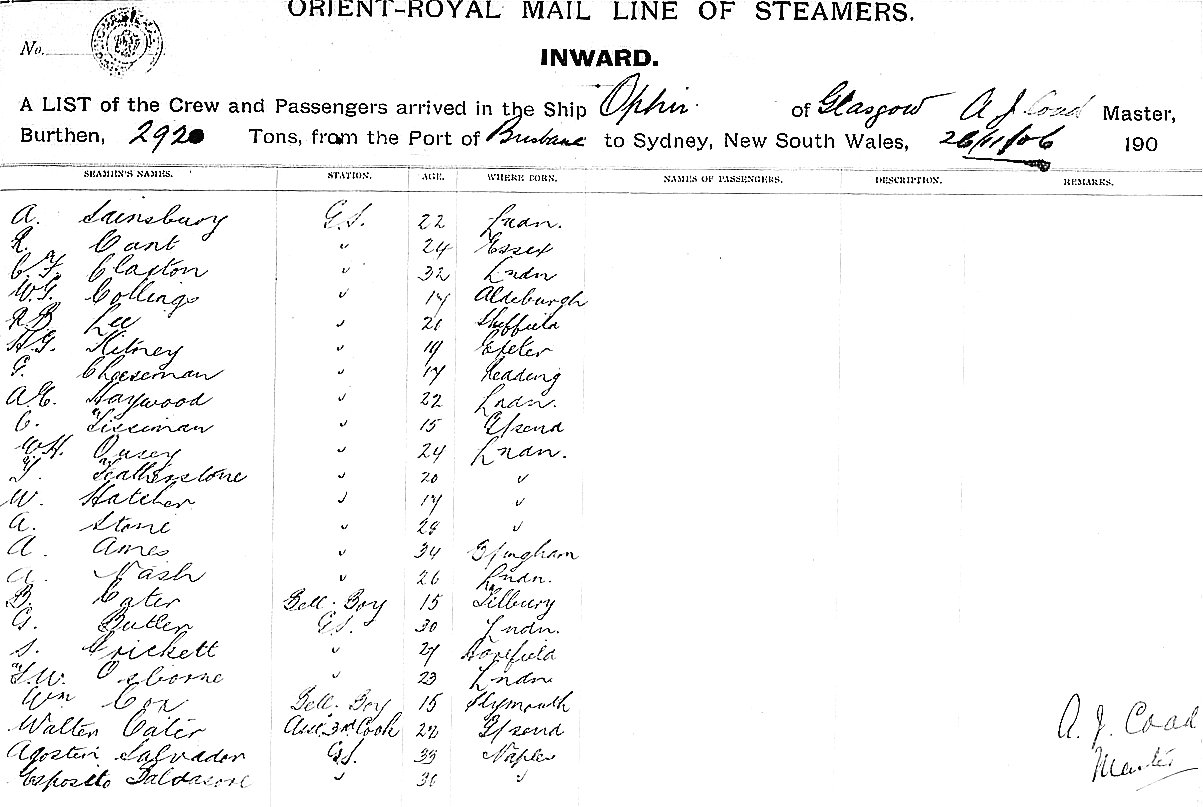 ORIENT-ROYAL MAIL LINE OF STEAMERS.
No.
INWARD.
A LIST of the Crew and Passengers arrived in the Ship Ophir of Glasgow A J Coad Master,
Burthen, 2920 Tons, from the Port of Brisbane to Sydney, New South Wales, 26/11/06 190
SEAMEN'S NAMES. STATION. AGE. WHERE BORN. NAMES OF PASSENGERS. DESCRIPTION. REMARKS.
A. Sainsbury G.S. 22 Lndn.
R. Cant " 24 Essex
C. F. Claxton " 32 Lndn
W.G. Collings " 17 Aldeburgh
R B. Lee " 21 Sheffield
H.G. Kitney " 19 Exeter
G. Cheeseman " 17 Reading
A.E. Haywood " 22 Lndn.
C. Tissiman " 15 G/send
W.H. " 24 Lndn.
T. Featherstone " 20 "
W. Hatcher " 17 "
A. Stone " 28 "
A. Ames " 34 G/ingham
A. Nash " 26 Lndn.
B. Cater Bell-Boy 15 Tilbury
G. Butler G.S. 30 Lndn.
S. Crickett " 27 Harefield
F.W. Osborne " 23 Lndn
Wm Cox Bell-Boy 15 Plymouth
Walter Cater Asst 3rd Cook 22 G/send
Agostin Salvador G.S. 33 Naples
Esposito " 36 "
A. J. Coad
Master